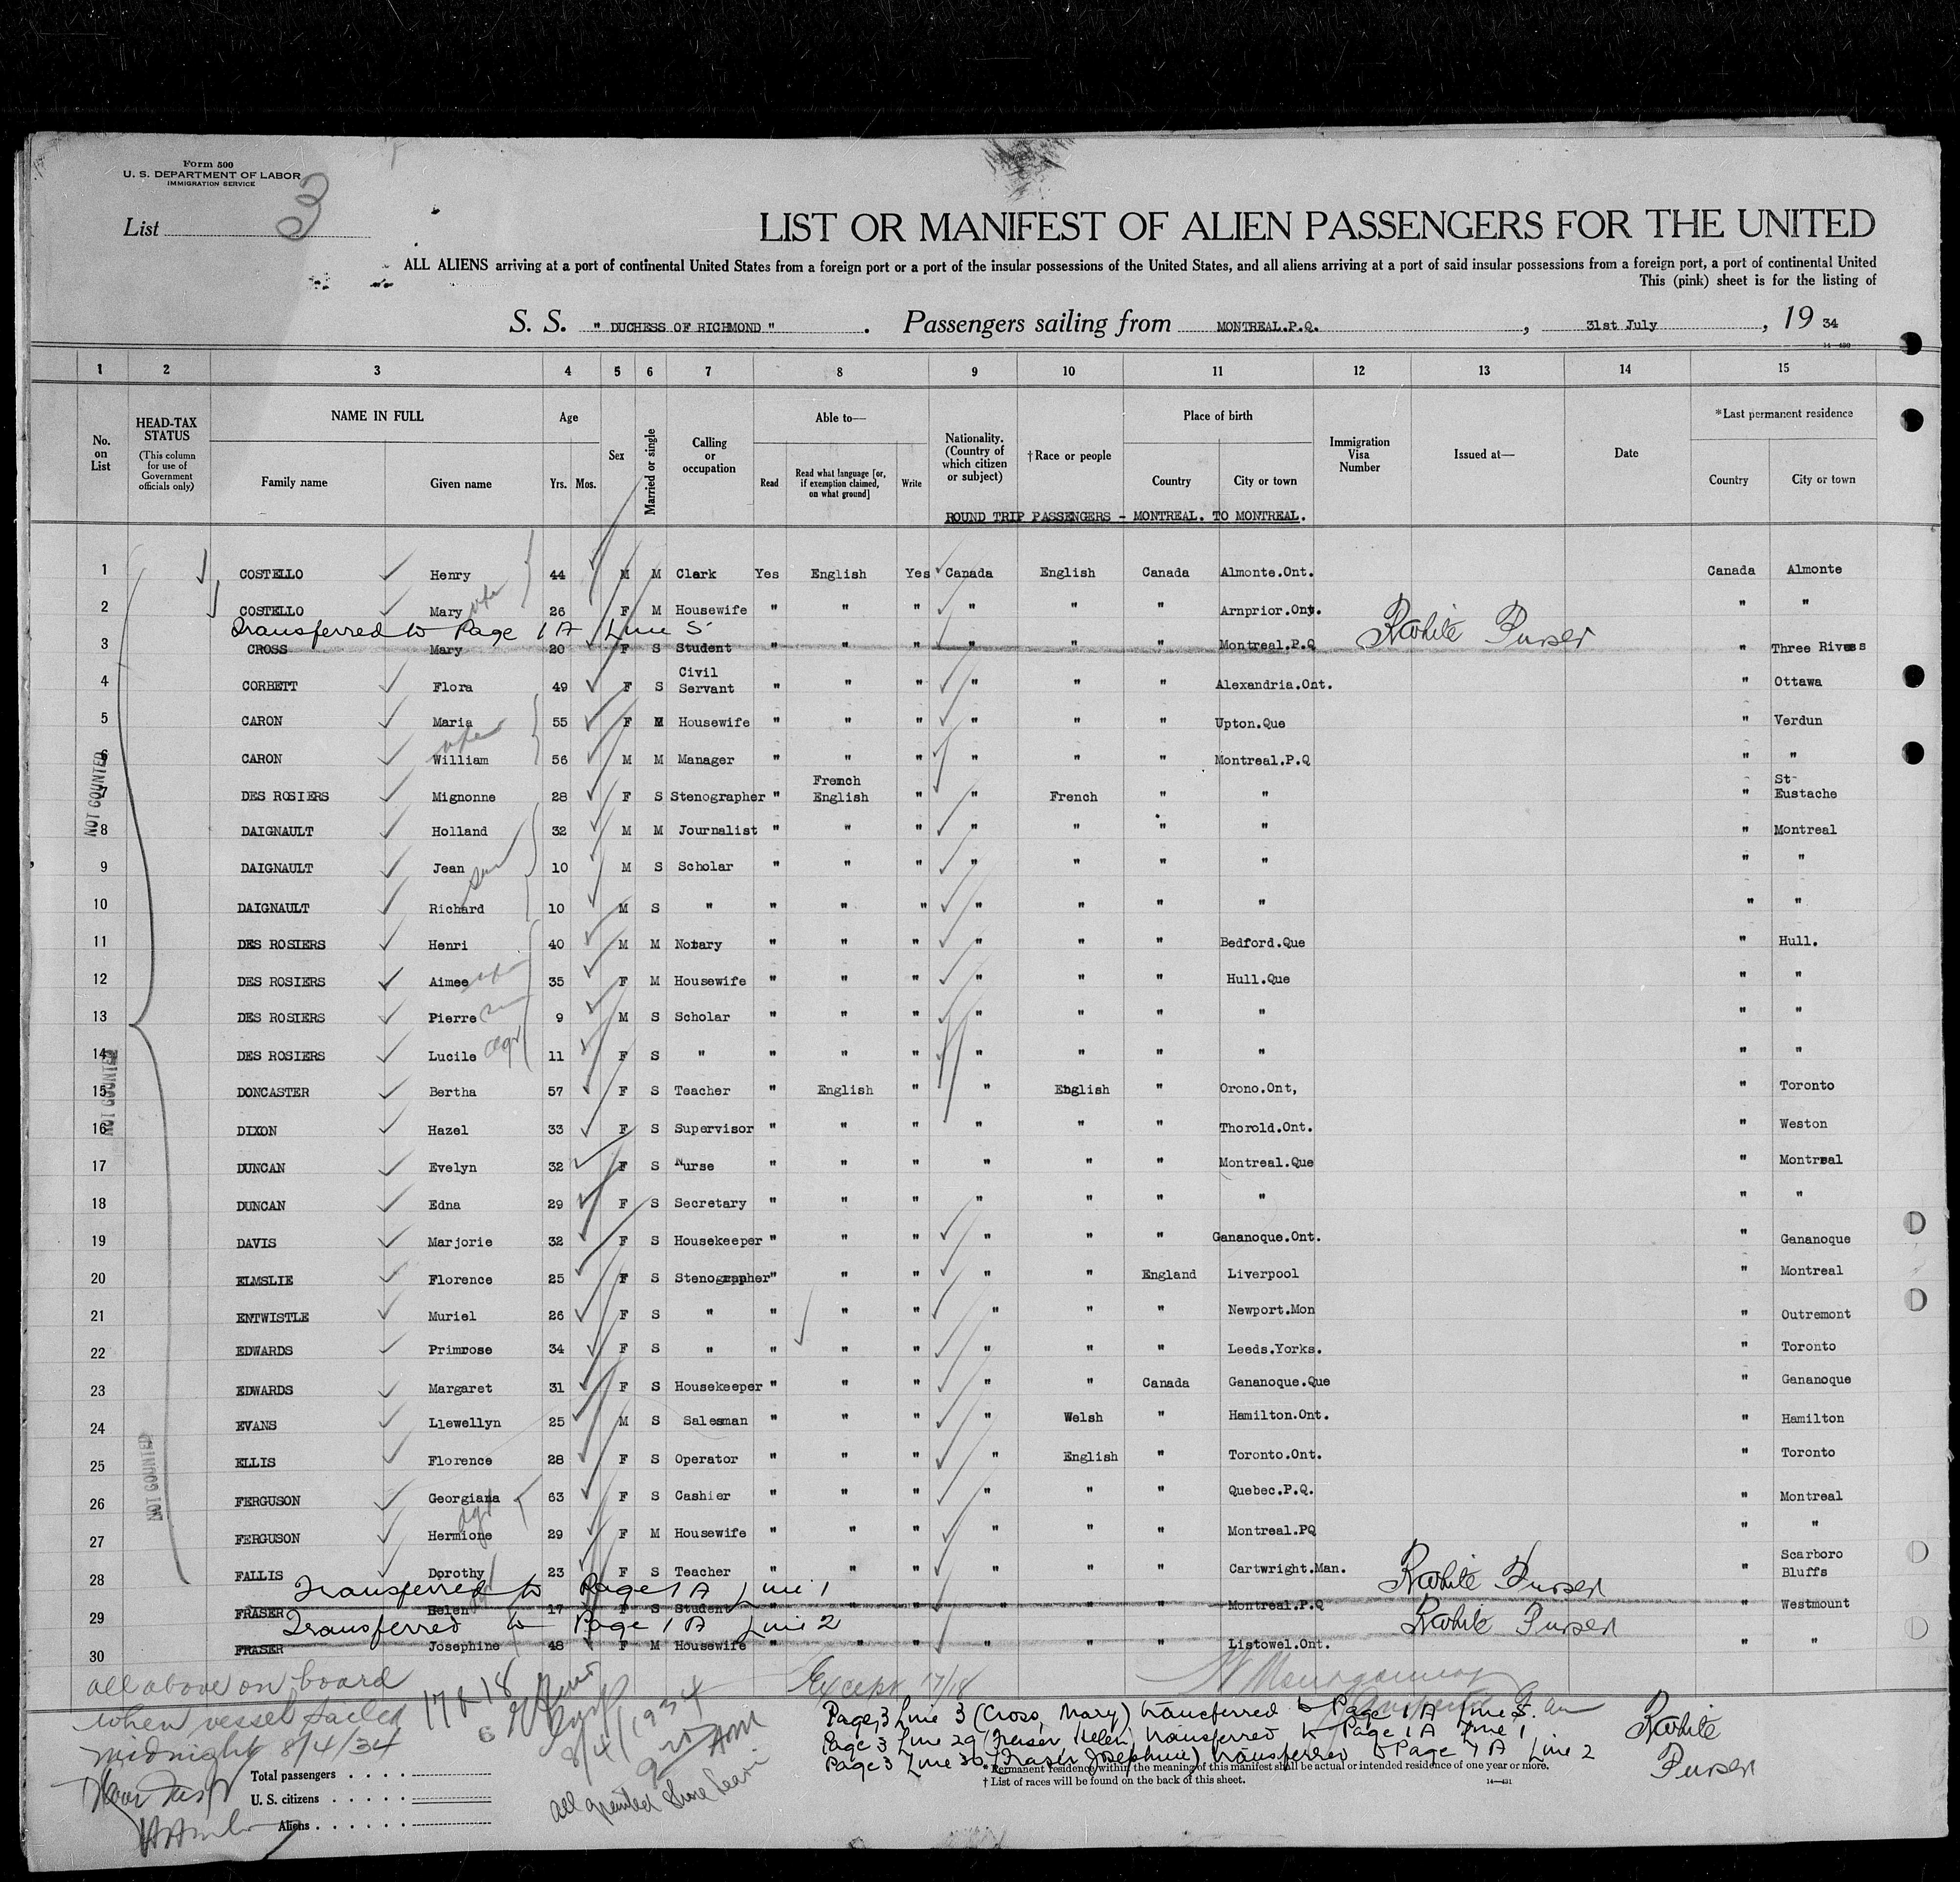 Form 500
U. S. DEPARTMENT OF LABOR
IMMIGRATION SERVICE
List 3
LIST OR MANIFEST OF ALIEN PASSENGERS FOR THE UNITED
ALL ALIENS arriving at a port of continental United States from a foreign port or a port of the insular possessions of the United States, and all aliens arriving at a port of said insular possessions from a foreign port, a port of continental United
This (pink) sheet is for the listing of
S. S. " DUCHESS OF RICHMOND " . Passengers sailing from MONTREAL.P.Q. , 31st July , 19 34
14—430
1 2 3 4 5 6 7 8 9 10 11 12 13 14 15
No. on List
HEAD-TAX STATUS (This column for use of Government officials only)
NAME IN FULL Family name Given name
Age Yrs. Mos.
Sex
Married or single
Calling or occupation
Able to— Read Read what language [or, if exemption claimed, on what ground] Write
Nationality. (Country of which citizen or subject)
†Race or people
Place of birth Country City or town
Immigration Visa Number
Issued at—
Date
*Last permanent residence Country City or town
ROUND TRIP PASSENGERS - MONTREAL. TO MONTREAL.
1 COSTELLO Henry 44 M M Clark Yes English Yes Canada English Canada Almonte.Ont. Canada Almonte
2 COSTELLO Mary wife 26 F M Housewife " " " " " " Arnprior.Ont. " "
Transferred to Page 1A Line 5 RWhite Purser
3 CROSS Mary 20 F S Student " " " " " " Montreal.P.Q " Three Rivers
4 CORBETT Flora 49 F S Civil Servant " " " " " " Alexandria.Ont. " Ottawa
5 CARON Maria 55 F M Housewife " " " " " " Upton.Que " Verdun
wife
6 CARON William 56 M M Manager " " " " " " Montreal.P.Q " "
7 DES ROSIERS Mignonne 28 F S Stenographer " French English " " French " " " St- Eustache
8 DAIGNAULT Holland 32 M M Journalist " " " " " " " " Montreal
9 DAIGNAULT Jean 10 M S Scholar " " " " " " " " "
son
10 DAIGNAULT Richard 10 M S " " " " " " " " " "
11 DES ROSIERS Henri 40 M M Notary " " " " " " Bedford.Que " Hull.
12 DES ROSIERS Aimee wife 35 F M Housewife " " " " " " Hull.Que " "
13 DES ROSIERS Pierre 9 M S Scholar " " " " " " " " "
14 DES ROSIERS Lucile dgr 11 F S " " " " " " " " " "
15 DONCASTER Bertha 57 F S Teacher " English " " English " Orono.Ont, " Toronto
16 DIXON Hazel 33 F S Supervisor " " " " " " Thorold.Ont. " Weston
17 DUNCAN Evelyn 32 F S Nurse " " " " " " Montreal.Que " Montreal
18 DUNCAN Edna 29 F S Secretary " " " " " " " " "
19 DAVIS Marjorie 32 F S Housekeeper " " " " " " Gananoque.Ont. " Gananoque
20 ELMSLIE Florence 25 F S Stenographer " " " " " England Liverpool " Montreal
21 ENTWISTLE Muriel 26 F S " " " " " " " Newport.Mon " Outremont
22 EDWARDS Primrose 34 F S " " " " " " " Leeds.Yorks. " Toronto
23 EDWARDS Margaret 31 F S Housekeeper " " " " " Canada Gananoque.Que " Gananoque
24 EVANS Llewellyn 25 M S Salesman " " " " Welsh " Hamilton.Ont. " Hamilton
25 ELLIS Florence 28 F S Operator " " " " English " Toronto.Ont. " Toronto
26 FERGUSON Georgiana 63 F S Cashier " " " " " " Quebec.P.Q. " Montreal
dgr
27 FERGUSON Hermione 29 F M Housewife " " " " " " Montreal.PQ " "
28 FALLIS Dorothy 23 F S Teacher " " " " " " Cartwright.Man. " Scarboro Bluffs
Transferred to Page 1A Line 1 RWhite Purser
29 FRASER Helen 17 F S Student " " " " " " Montreal.P.Q " Westmount
Transferred to Page 1A Line 2 RWhite Purser
30 FRASER Josephine 48 F M Housewife " " " " " " Listowel.Ont. " "
NOT COUNTED
NOT COUNTED
NOT COUNTED
all above on board
when vessel sailed
midnight 8/4/34
17 & 18
8/4/1934
9 20 AM
all granted Shore Leave
Except 17/18
Page 3 Line 3 (Cross, Mary) transferred to Page 1A Line 5.
Page 3 Line 29 (Fraser Helen) transferred to Page 1A Line 1
Page 3 Line 30 (Fraser Josephine) transferred to Page 1A Line 2
RWhite
Purser
Total passengers . . . .
U. S. citizens . . . . .
Aliens . . . . . .
* Permanent residence within the meaning of this manifest shall be actual or intended residence of one year or more.
† List of races will be found on the back of this sheet.
14—431